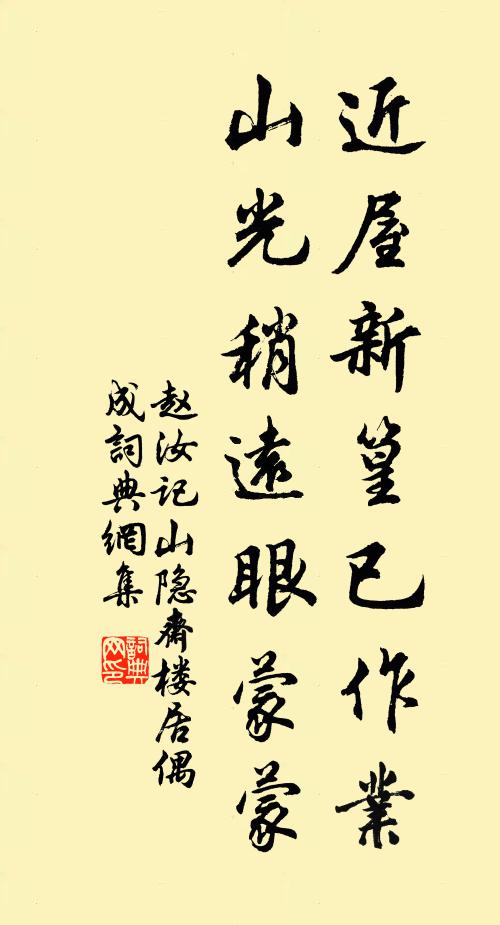 近屋新篁已作業
山光稍遠眼蒙蒙
赵汝记山隐齋楼居偶
成詞典網集
詞典网印